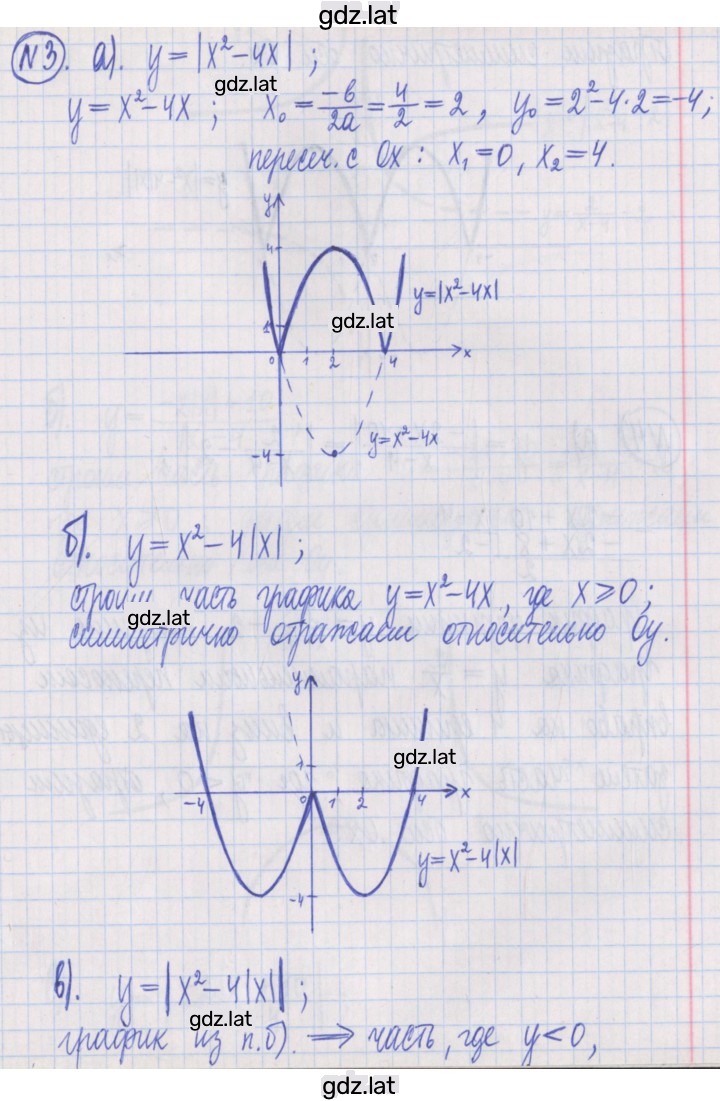 gdz.lat
№3. а). y = |x² – 4x| ;
gdz.lat
y = x² – 4x ; x₀ = –b/2a = 4/2 = 2 , y₀ = 2² – 4·2 = –4;
пересеч. с Ox : x₁ = 0 , x₂ = 4.
y
4
y = |x² – 4x|
gdz.lat
1
0 1 2 4 x
y = x² – 4x
–4
б). y = x² – 4|x| ;
строим часть графика y = x² – 4x , где x ⩾ 0 ;
gdz.lat
симметрично отражаем относительно Oy.
y
gdz.lat
1
–4 0 1 2 4 x
y = x² – 4|x|
–4
в). y = |x² – 4|x|| ;
gdz.lat
график из п.б). ⟹ часть, где y < 0 ,
gdz.lat